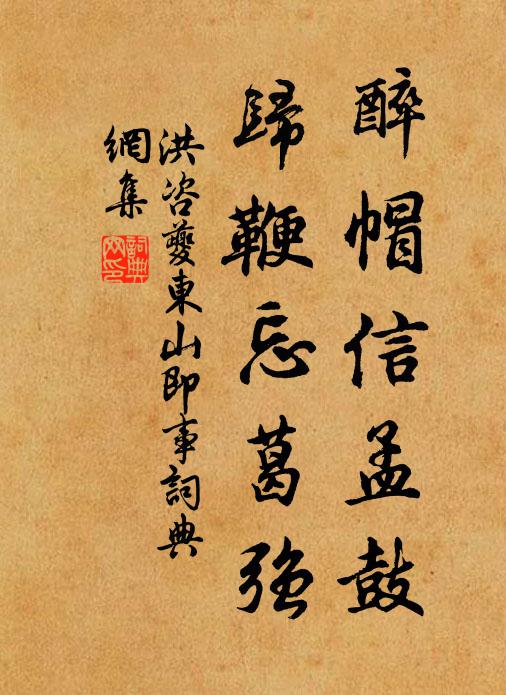 醉帽信孟鼓
歸鞭忘葛強
洪咨夔東山即事詞典
網集
詞典
网印